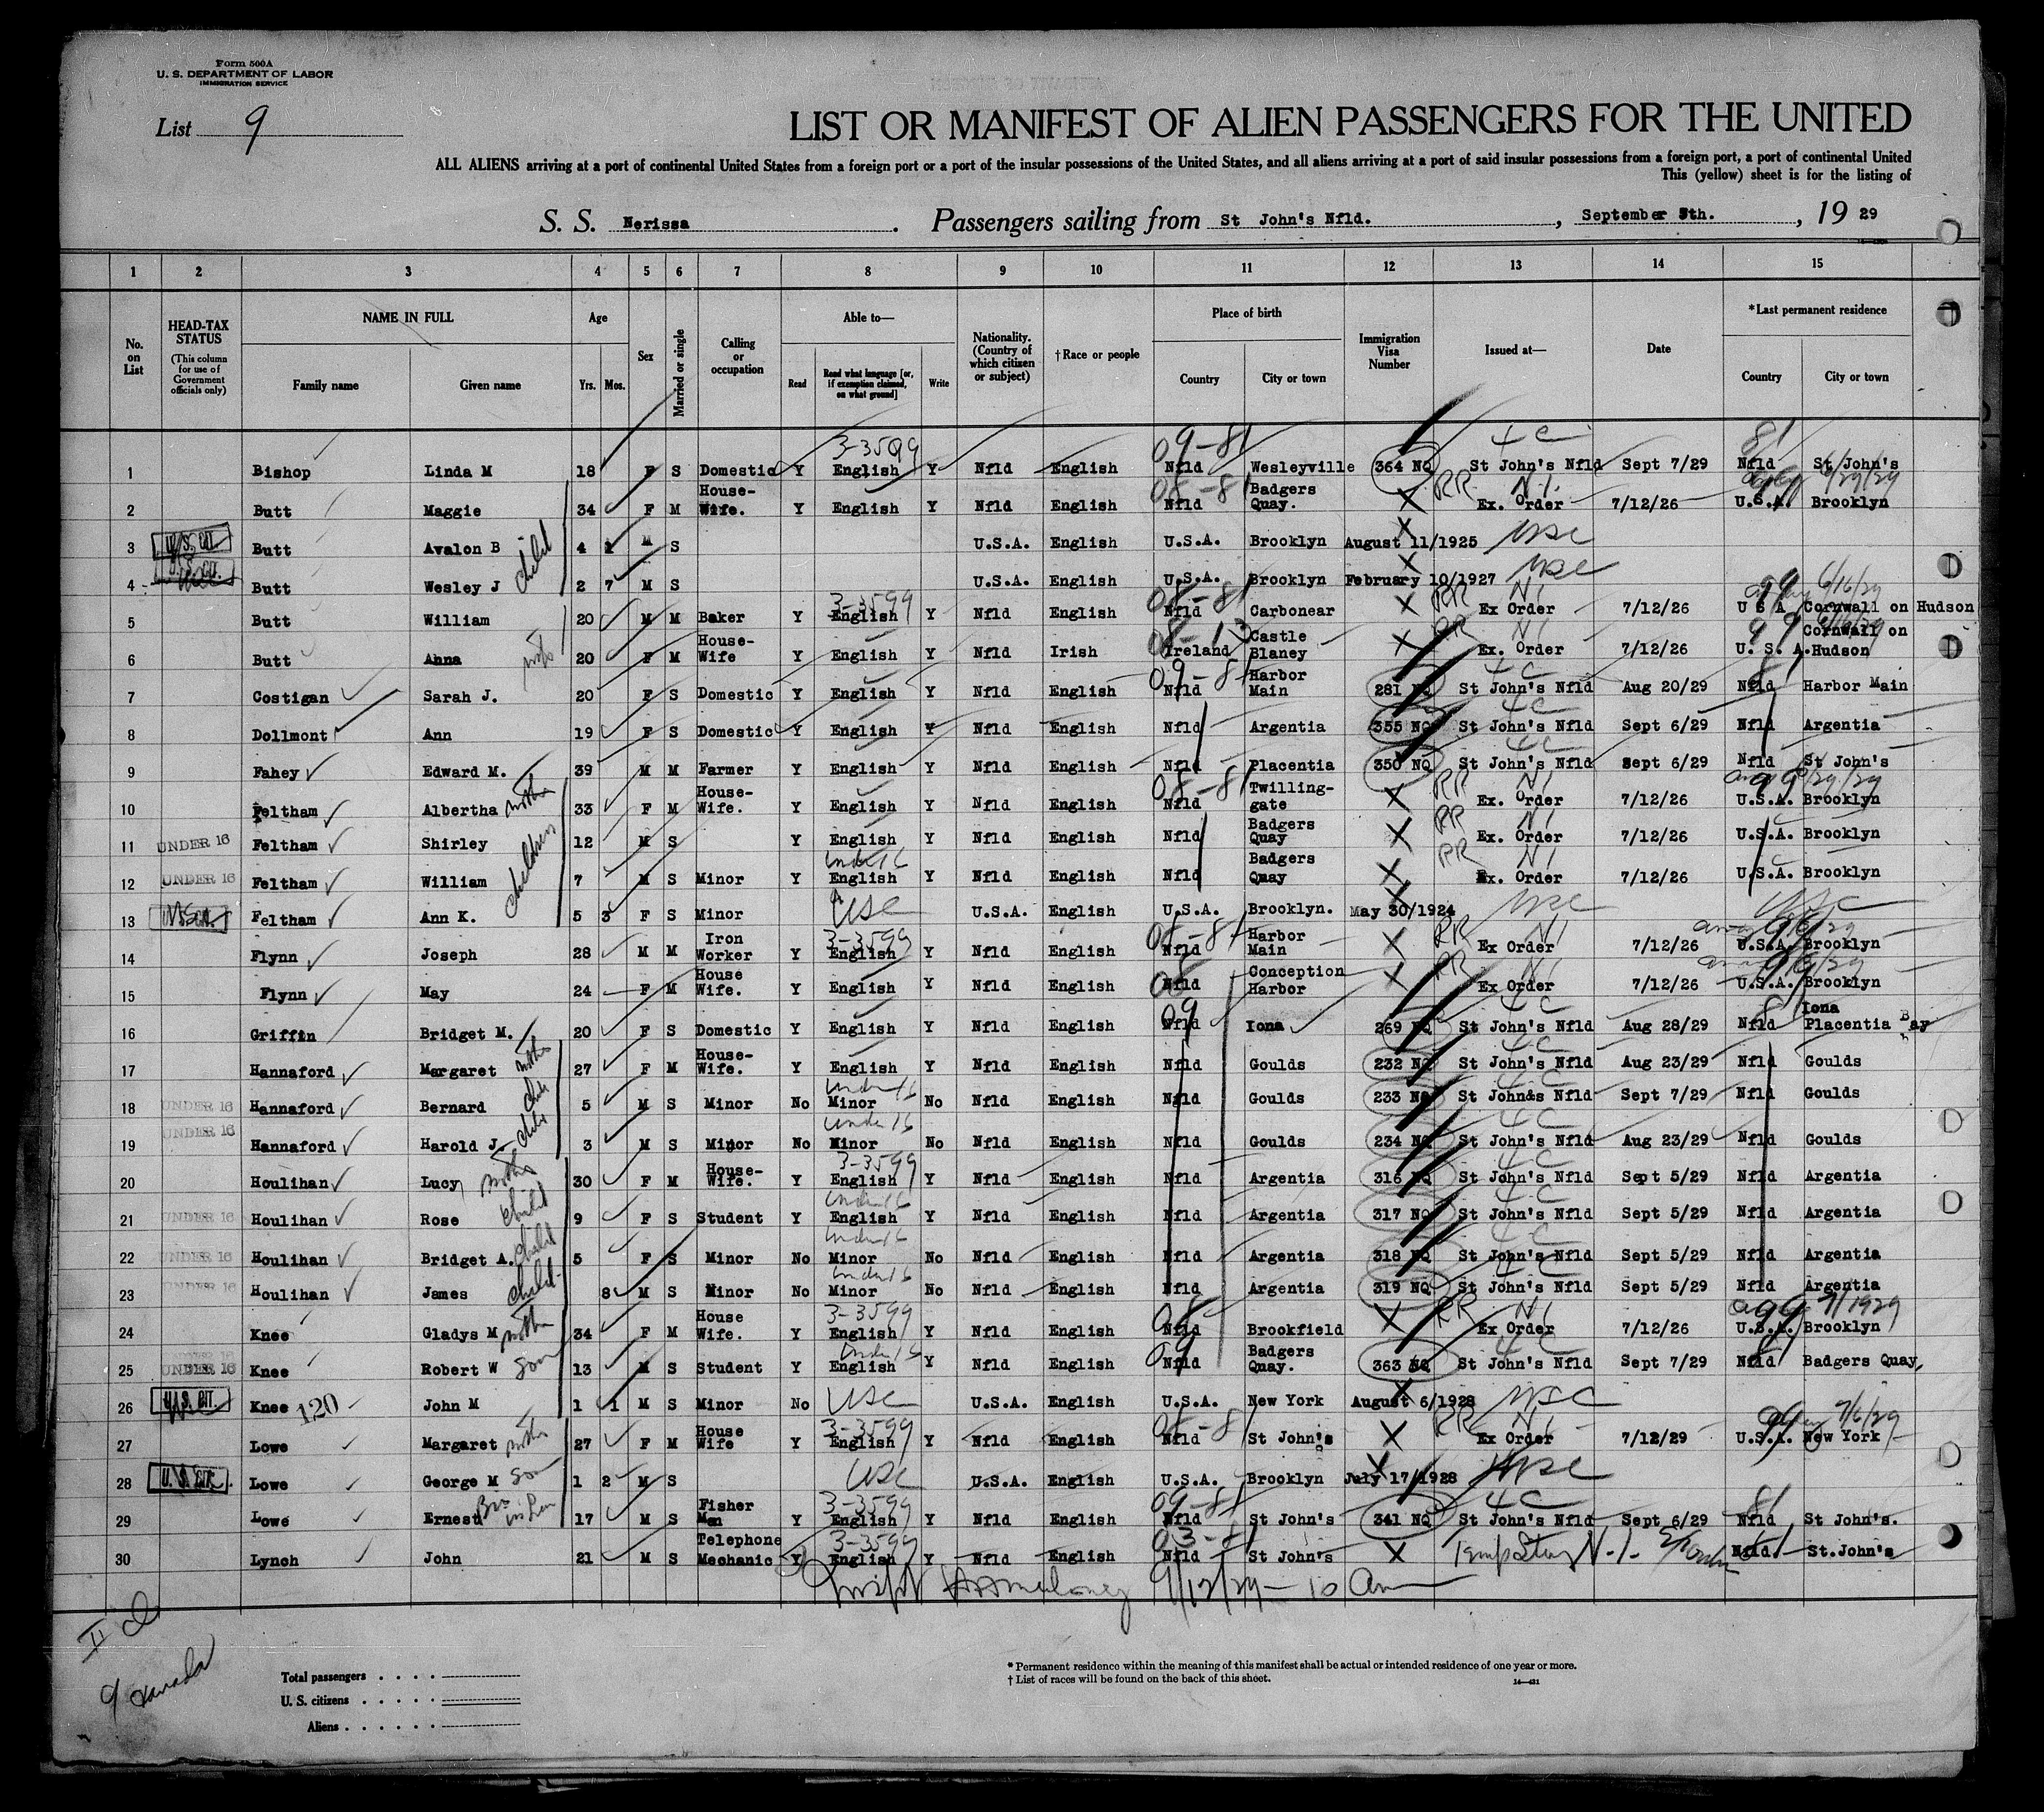 Form 500A
U. S. DEPARTMENT OF LABOR
IMMIGRATION SERVICE
List 9
LIST OR MANIFEST OF ALIEN PASSENGERS FOR THE UNITED
ALL ALIENS arriving at a port of continental United States from a foreign port or a port of the insular possessions of the United States, and all aliens arriving at a port of said insular possessions from a foreign port, a port of continental United
This (yellow) sheet is for the listing of
S. S. Nerissa. Passengers sailing from St John's Nfld., September 8th., 19 29
1 2 3 4 5 6 7 8 9 10 11 12 13 14 15
No. on List
HEAD-TAX STATUS (This column for use of Government officials only)
NAME IN FULL Family name Given name
Age Yrs. Mos.
Sex
Married or single
Calling or occupation
Able to— Read Read what language [or, if exemption claimed, on what ground] Write
Nationality. (Country of which citizen or subject)
†Race or people
Place of birth Country City or town
Immigration Visa Number
Issued at—
Date
*Last permanent residence Country City or town
1 Bishop Linda M 18 F S Domestic Y 3-3599 English Y Nfld English 09-81 Nfld Wesleyville 364 NQ 4C St John's Nfld Sept 7/29 81 Nfld St John's
2 Butt Maggie 34 F M House-Wife. Y English Y Nfld English 08-81 Nfld Badgers Quay. X RR NI Ex. Order 7/12/26 U.S.A. Brooklyn
3 U.S. CIT. Butt Avalon B child 4 1 M S U.S.A. English U.S.A. Brooklyn X August 11/1925 USC
4 U.S. CIT. Butt Wesley J 2 7 M S U.S.A. English U.S.A. Brooklyn X February 10/1927 USC
5 Butt William 20 M M Baker Y 3-3599 English Y Nfld English 08-81 Nfld Carbonear X RR NI Ex Order 7/12/26 99 6/16/29 U S A Cornwall on Hudson
6 Butt Anna wife 20 F M House-Wife Y English Y Nfld Irish 08-13 Ireland Castle Blaney X RR NI Ex. Order 7/12/26 99 U. S. A. Cornwall on Hudson
7 Costigan Sarah J. 20 F S Domestic Y English Y Nfld English 09-81 Nfld Harbor Main 281 NQ 4C St John's Nfld Aug 20/29 81 Nfld Harbor Main
8 Dollmont Ann 19 F S Domestic Y English Y Nfld English Nfld Argentia 355 NQ 4C St John's Nfld Sept 6/29 Nfld Argentia
9 Fahey Edward M. 39 M M Farmer Y English Y Nfld English Nfld Placentia 350 NQ 4C St John's Nfld Sept 6/29 Nfld St John's
10 Feltham Albertha mother 33 F M House-Wife. Y English Y Nfld English 08-81 Nfld Twilling-gate X RR NI Ex. Order 7/12/26 U.S.A. Brooklyn
11 UNDER 16 Feltham Shirley children 12 M S Y English Y Nfld English Nfld Badgers Quay X RR NI Ex. Order 7/12/26 U.S.A. Brooklyn
12 UNDER 16 Feltham William 7 M S Minor Y under 16 English Y Nfld English Nfld Badgers Quay X RR NI Ex. Order 7/12/26 U.S.A. Brooklyn
13 Feltham Ann K. 5 3 F S Minor USC U.S.A. English U.S.A. Brooklyn. X May 30/1924 USC USC
14 Flynn Joseph 28 M M Iron Worker Y 3-3599 English Y Nfld English 08-81 Nfld Harbor Main X RR NI Ex Order 7/12/26 U.S.A. Brooklyn
15 Flynn May 24 F M House Wife. Y English Y Nfld English 08 Nfld Conception Harbor X RR NI Ex Order 7/12/26 U.S.A. Brooklyn
16 Griffin Bridget M. 20 F S Domestic Y English Y Nfld English 09 Nfld Iona 269 NQ 4C St John's Nfld Aug 28/29 81 Nfld Iona Placentia Bay
17 Hannaford Margaret mother 27 F M House-Wife. Y English Y Nfld English Nfld Goulds 232 NQ 4C St John's Nfld Aug 23/29 Nfld Goulds
18 UNDER 16 Hannaford Bernard child 5 M S Minor No under 16 Minor No Nfld English Nfld Goulds 233 NQ 4C St John&s Nfld Sept 7/29 Nfld Goulds
19 UNDER 16 Hannaford Harold J. child 3 M S Minor No under 16 Minor No Nfld English Nfld Goulds 234 NQ 4C St John's Nfld Aug 23/29 Nfld Goulds
20 Houlihan Lucy mother 30 F M House-Wife. Y 3-3599 English Y Nfld English Nfld Argentia 316 NQ 4C St John's Nfld Sept 5/29 Nfld Argentia
21 UNDER 16 Houlihan Rose child 9 F S Student Y under 16 English Y Nfld English Nfld Argentia 317 NQ 4C St John's Nfld Sept 5/29 Nfld Argentia
22 UNDER 16 Houlihan Bridget A. child 5 F S Minor No under 16 Minor No Nfld English Nfld Argentia 318 NQ 4C St John's Nfld Sept 5/29 Nfld Argentia
23 UNDER 16 Houlihan James child 8 M S Minor No under 16 Minor No Nfld English Nfld Argentia 319 NQ 4C St John's Nfld Sept 5/29 Nfld Argentia
24 Knee Gladys M mother 34 F M House Wife. Y 3-3599 English Y Nfld English 08 Nfld Brookfield X RR NI Ex Order 7/12/26 99 U.S.A. Brooklyn
25 UNDER 16 Knee Robert W son 13 M S Student Y under 16 English Y Nfld English 09 Nfld Badgers Quay. 363 NQ 4C St John's Nfld Sept 7/29 81 Nfld Badgers Quay,
26 U.S. CIT. Knee 120 John M 1 1 M S Minor No USC U.S.A. English U.S.A. New York X August 6/1928 USC
27 Lowe Margaret mother 27 F M House Wife Y 3-3599 English Y Nfld English 08-81 Nfld St John's X RR NI Ex Order 7/12/29 99 7/6/29 U.S.A. New York
28 U. S. CIT. Lowe George M son 1 2 M S USC U.S.A. English U.S.A. Brooklyn X July 17/1928 USC
29 Lowe Ernest Bro in law 17 M S Fisher Man Y 3-3599 English Y Nfld English 09-81 Nfld St John's 341 NQ 4C St John's Nfld Sept 6/29 81 Nfld St John's.
30 Lynch John 21 M S Telephone Mechanic Y 3-3599 English Y Nfld English 03-81 Nfld St John's X N.I. Nfld. St.John's
9/12/29 - 10 am
9 Canada
Total passengers . . . .
U. S. citizens . . . . .
Aliens . . . . . .
* Permanent residence within the meaning of this manifest shall be actual or intended residence of one year or more.
† List of races will be found on the back of this sheet.